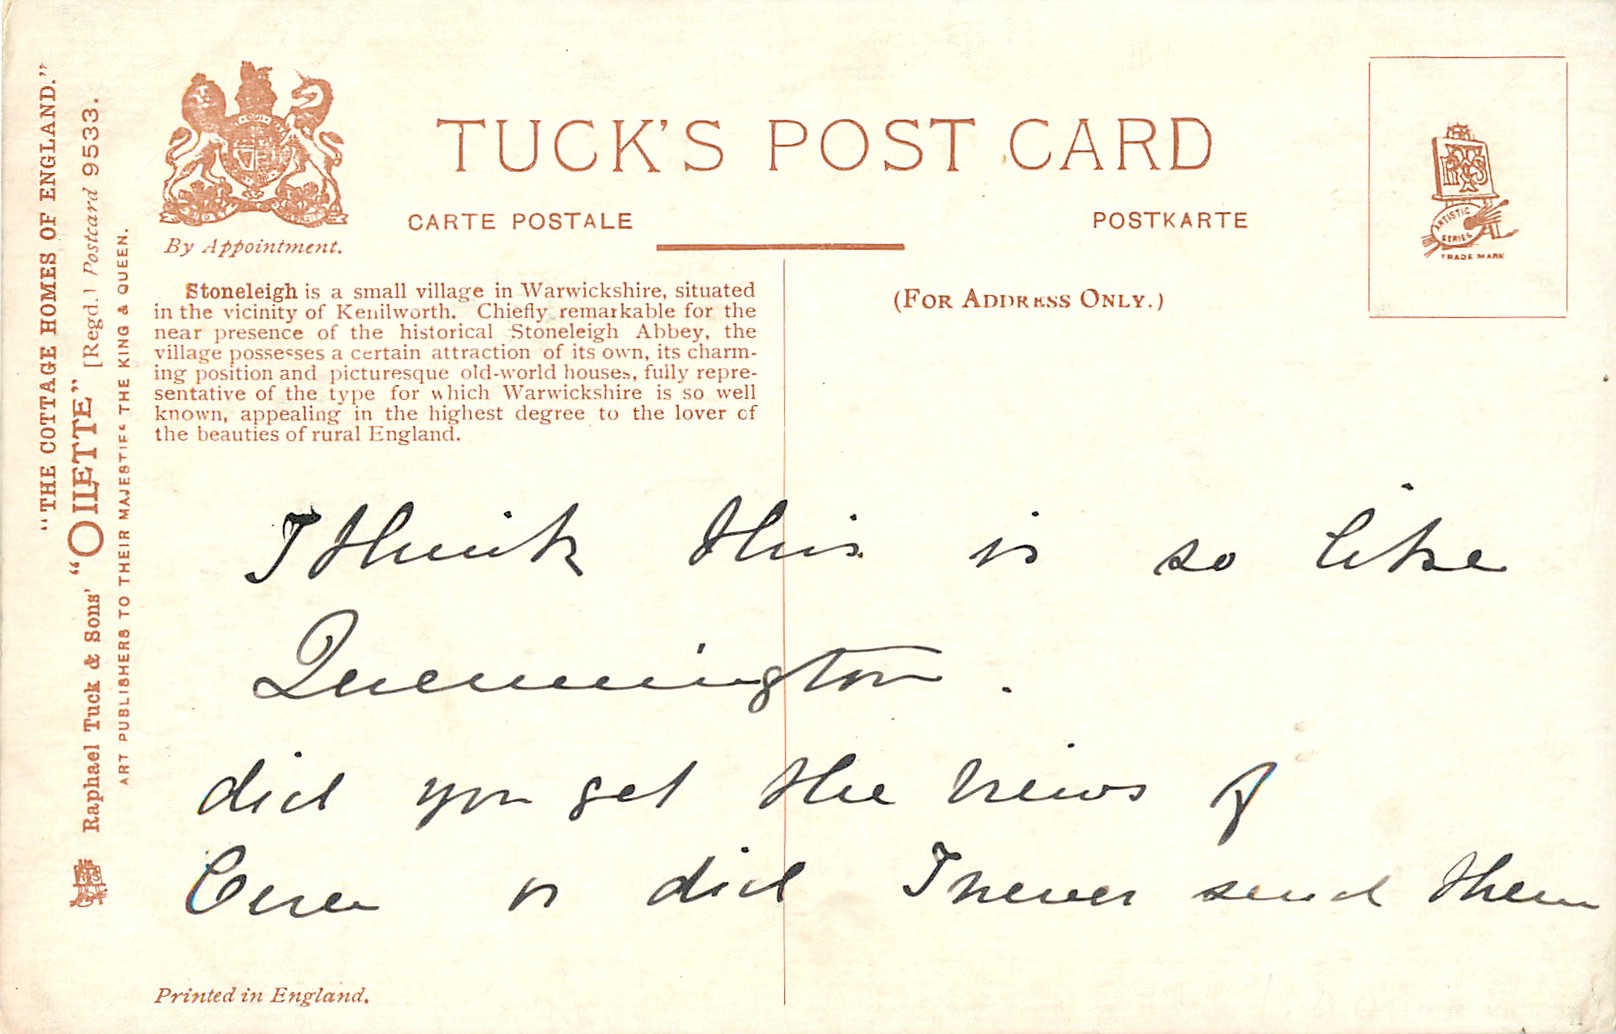 "THE COTTAGE HOMES OF ENGLAND."
Raphael Tuck & Sons' "OILETTE" [Regd.] Postcard 9533.
ART PUBLISHERS TO THEIR MAJESTIES THE KING & QUEEN.
By Appointment.
TUCK'S POST CARD
CARTE POSTALE
POSTKARTE
ARTISTIC
SERIES
TRADE MARK
(FOR ADDRESS ONLY.)
Stoneleigh is a small village in Warwickshire, situated
in the vicinity of Kenilworth. Chiefly remarkable for the
near presence of the historical Stoneleigh Abbey, the
village possesses a certain attraction of its own, its charm-
ing position and picturesque old-world houses, fully repre-
sentative of the type for which Warwickshire is so well
known, appealing in the highest degree to the lover of
the beauties of rural England.
I think this is so like
Quennington.
did you get the news of
or did I never send them
Printed in England.